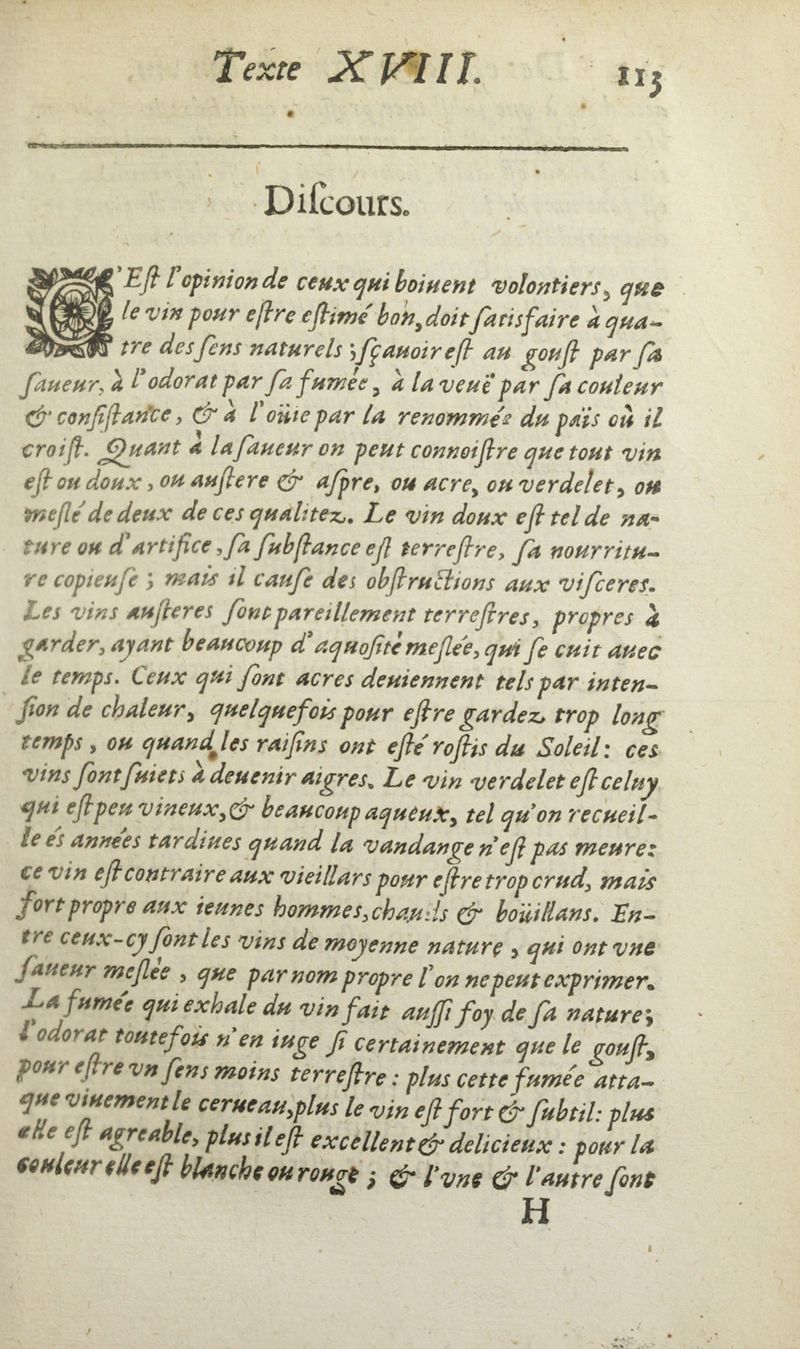 Texte XVIII. 113
Diſcours.
C'Eſt l'opinion de ceux qui boiuent volontiers, que
le vin pour eſtre eſtimé bon, doit ſatisfaire à qua-
tre des ſens naturels ; ſçauoir eſt au gouſt par ſa
ſaueur, à l'odorat par ſa fumée, à la veuë par ſa couleur
& conſiſtance, & à l'oüie par la renommée du païs où il
croiſt. Quant à la ſaueur on peut connoiſtre que tout vin
eſt ou doux, ou auſtere & aſpre, ou acre, ou verdelet, ou
meſlé de deux de ces qualitez. Le vin doux eſt tel de na-
ture ou d'artifice, ſa ſubſtance eſt terreſtre, ſa nourritu-
re copieuſe ; mais il cauſe des obſtructions aux viſceres.
Les vins auſteres ſont pareillement terreſtres, propres à
garder, ayant beaucoup d'aquoſité meſlée, qui ſe cuit auec
le temps. Ceux qui ſont acres deuiennent tels par inten-
ſion de chaleur, quelquefois pour eſtre gardez trop long
temps, ou quand les raiſins ont eſté roſtis du Soleil: ces
vins ſont ſuiets à deuenir aigres. Le vin verdelet eſt celuy
qui eſt peu vineux, & beaucoup aqueux, tel qu'on recueil-
le és années tardiues quand la vandange n'eſt pas meure:
ce vin eſt contraire aux vieillars pour eſtre trop crud, mais
fort propre aux ieunes hommes, chauds & boüillans. En-
tre ceux-cy ſont les vins de moyenne nature, qui ont vne
ſaueur meſlée, que par nom propre l'on ne peut exprimer.
La fumée qui exhale du vin fait auſſi foy de ſa nature;
l'odorat toutefois n'en iuge ſi certainement que le gouſt,
pour eſtre vn ſens moins terreſtre : plus cette fumée atta-
que viuement le cerueau, plus le vin eſt fort & ſubtil: plus
elle eſt agreable, plus il eſt excellent & delicieux : pour la
couleur elle eſt blanche ou rouge ; & l'vne & l'autre ſont
H